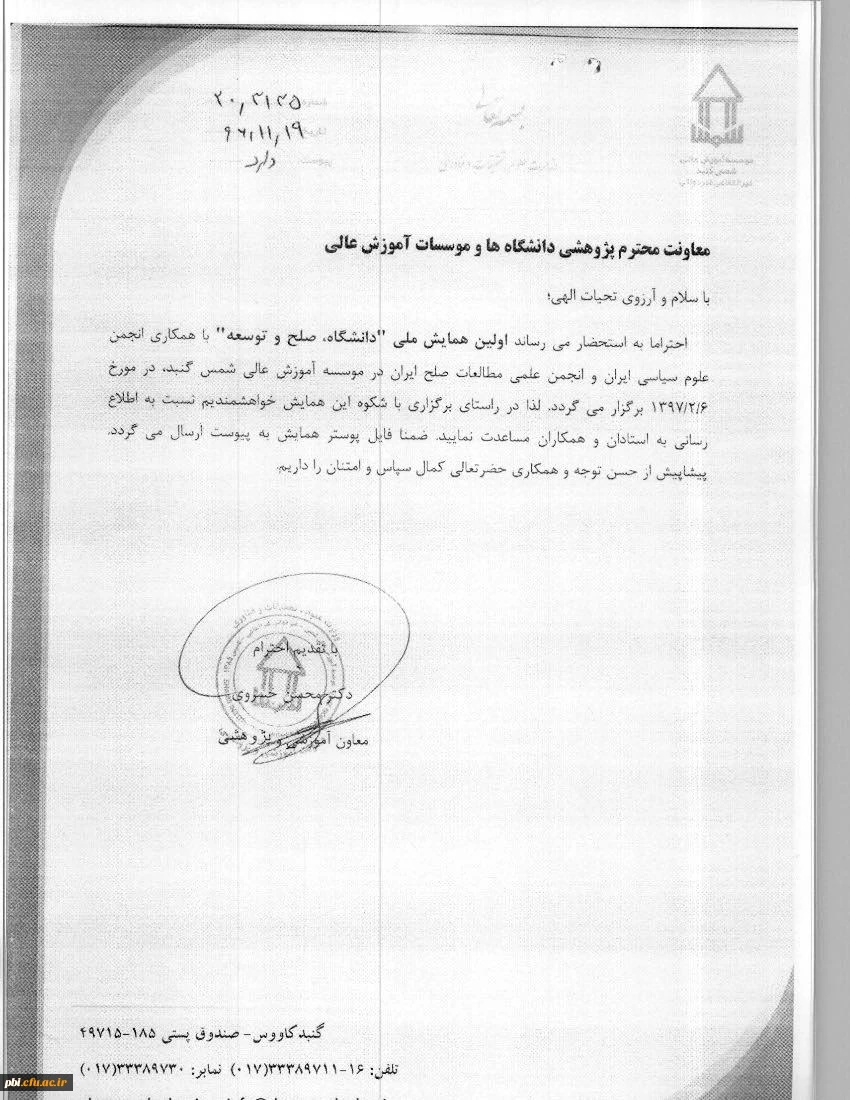 بسمه تعالی
شمس
موسسه آموزش عالی
شمس گنبد
غیرانتفاعی غیردولتی
شماره
۲۰٫۳۱۳۵
تاریخ
۹۶٫۱۱٫۱۹
پیوست
دارد
معاونت محترم پژوهشی دانشگاه ها و موسسات آموزش عالی
با سلام و آرزوی تحیات الهی؛
احتراما به استحضار می رساند اولین همایش ملی "دانشگاه، صلح و توسعه" با همکاری انجمن
علوم سیاسی ایران و انجمن علمی مطالعات صلح ایران در موسسه آموزش عالی شمس گنبد، در مورخ
۱۳۹۷/۲/۶ برگزار می گردد. لذا در راستای برگزاری با شکوه این همایش خواهشمندیم نسبت به اطلاع
رسانی به استادان و همکاران مساعدت نمایید. ضمنا فایل پوستر همایش به پیوست ارسال می گردد.
پیشاپیش از حسن توجه و همکاری حضرتعالی کمال سپاس و امتنان را داریم.
با تقدیم احترام
دکتر محسن خسروی
معاون آموزشی و پژوهشی
گنبدکاووس- صندوق پستی ۱۸۵-۴۹۷۱۵
تلفن: ۱۶-۳۳۳۸۹۷۱۱(۰۱۷) نمابر: ۳۳۳۸۹۷۳۰(۰۱۷)
pbi.cfu.ac.ir